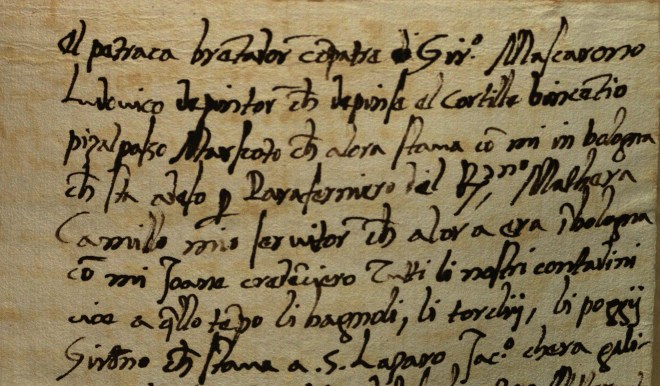 el petraca bretador cõpatre di Gir.º Mascarono
Ludovico depintor ch depinse el Cortille vincẽtio
palpasso Marscoto ch alora stava cõ mi in bologna
ch sta adesso p Parafernero del R.mo
Camillo mio servitor ch alora era ĩ bologna
cõ mi Joane credẽciero Tutti li nostri contadini
cioe a qllo tẽpo li bagnoli, li torchij, li poggij
ch stava a .S. Laȥaro Jac.º ch era